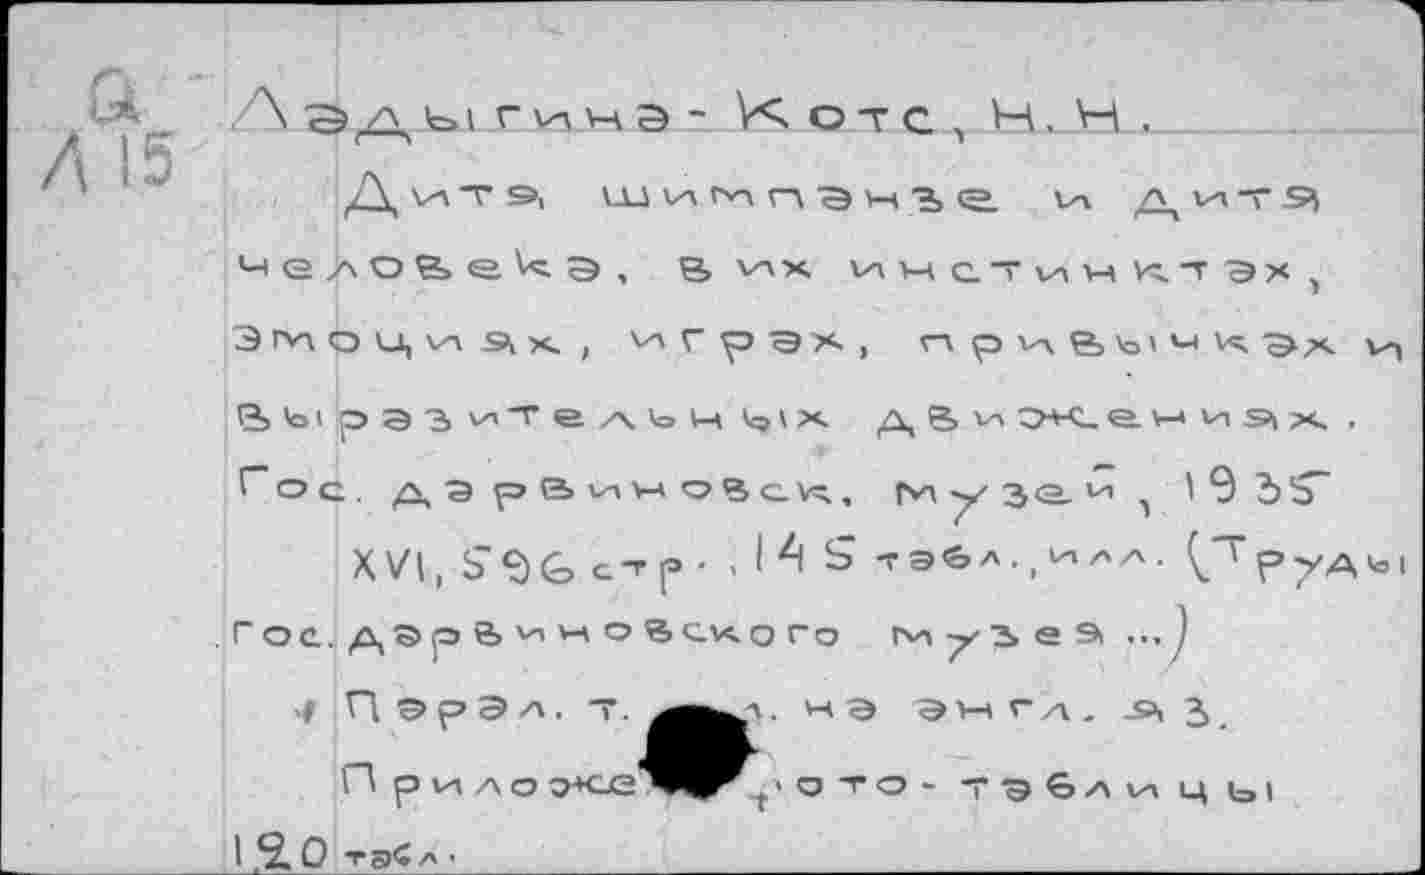 Q
Л 15
Ладыгина-Котс, Н. Н.
Дитя шимпанзе и дитя
человека, в их инстинктах,
эмоциях, играх, привычках и
выразительных движениях.
Гос. дарвиновск. музей, 1935
XVI, 596 стр., 145 табл., илл. (Труды
Гос. дарвиновского музея ...)
Парал. т. на англ. яз.
ото-таблицы
120 табл.